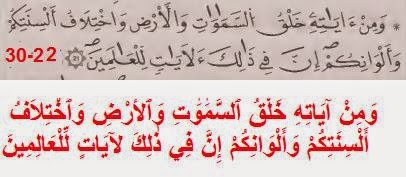 * وَمِنْ ءَايَٰتِهِۦ خَلْقُ ٱلسَّمَٰوَٰتِ وَٱلْأَرْضِ وَٱخْتِلَٰفُ أَلْسِنَتِكُمْ
30-22
وَأَلْوَٰنِكُمْ إِنَّ فِى ذَٰلِكَ لَءَايَٰتٍ لِّلْعَٰلِمِينَ
وَمِنْ آيَاتِهِ خَلْقُ ٱلسَّمَٰوَٰتِ وَٱلأَرْضِ وَٱخْتِلاَفُ
أَلْسِنَتِكُمْ وَأَلْوَانِكُمْ إِنَّ فِي ذٰلِكَ لآيَاتٍ لِّلْعَالِمِينَ